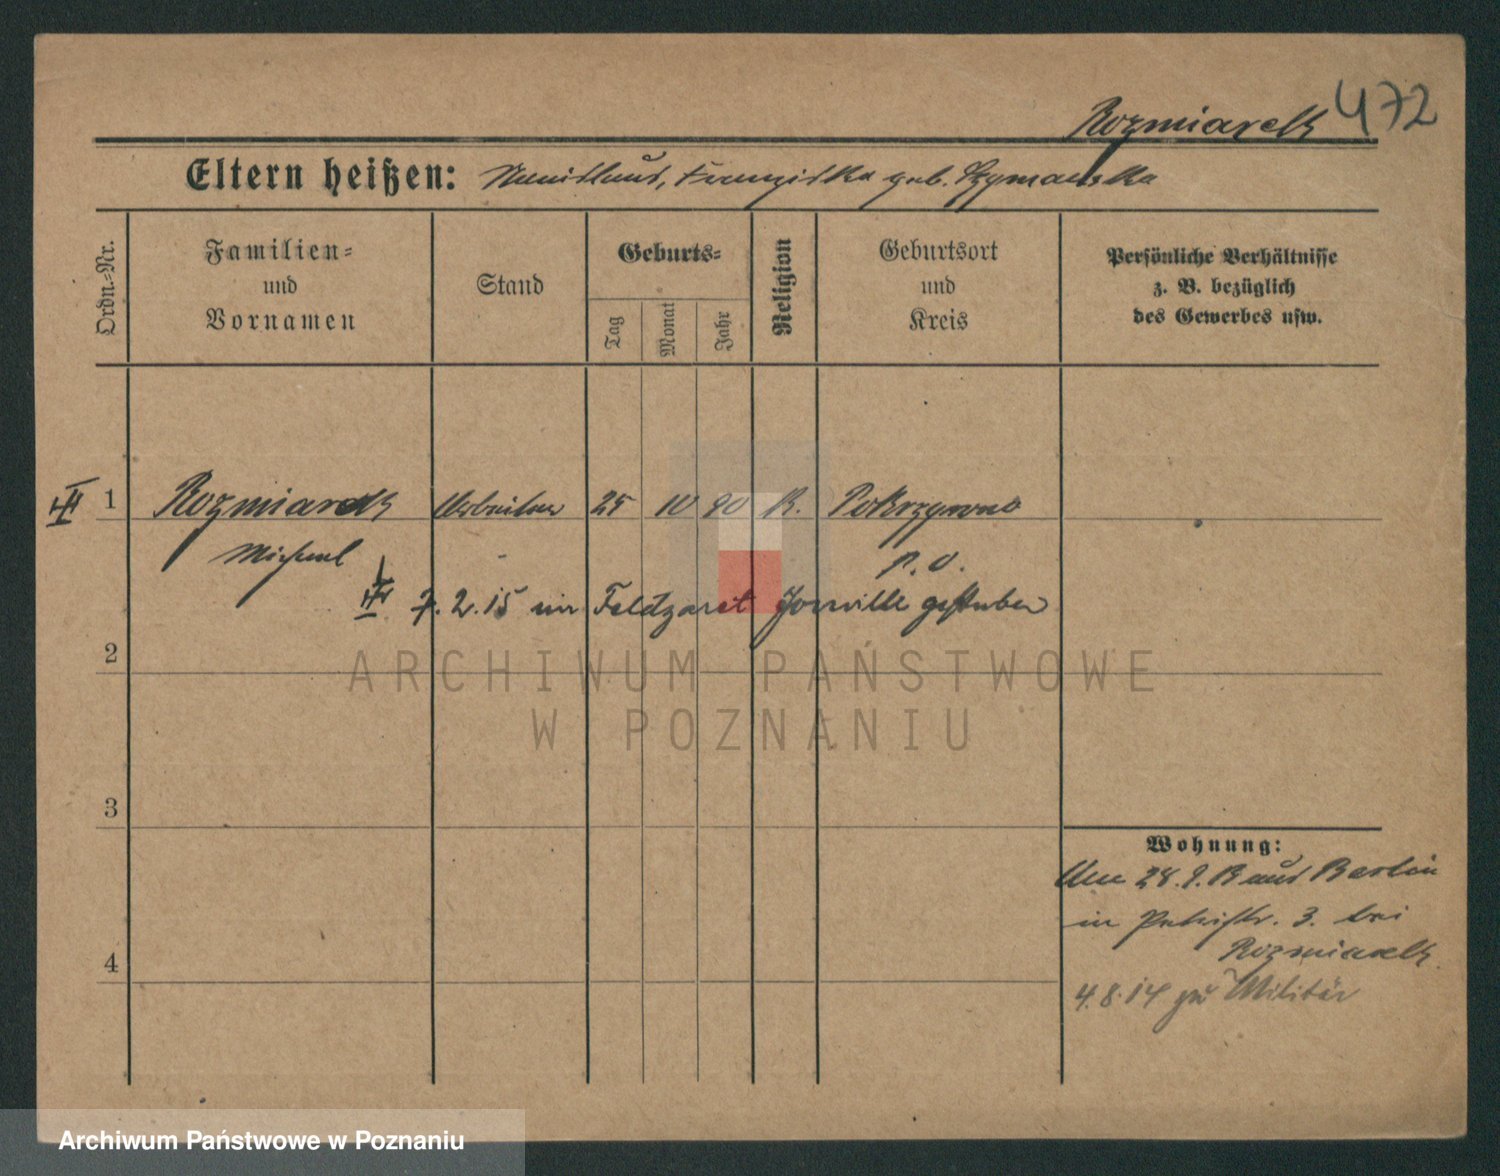 472
Rozmiarek
Eltern heißen: Franziska geb. Szymanska
Ordn.-Nr.
Familien-
und
Vornamen
Stand
Geburts-
Tag
Monat
Jahr
Religion
Geburtsort
und
Kreis
Persönliche Verhältnisse
z. B. bezüglich
des Gewerbes usw.
1 Rozmiarek Arbeiter 25 10 90 K. Pokrzywno
Michael P. O.
7. 2. 15 im Feldlazaret Joinville gestorben
2
3
4
Wohnung:
Am 28. 9. 13 aus Berlin
in Petristr. 3. bei
Rozmiarek
4. 8. 14 zu Militär
ARCHIWUM PAŃSTWOWE
W POZNANIU
Archiwum Państwowe w Poznaniu